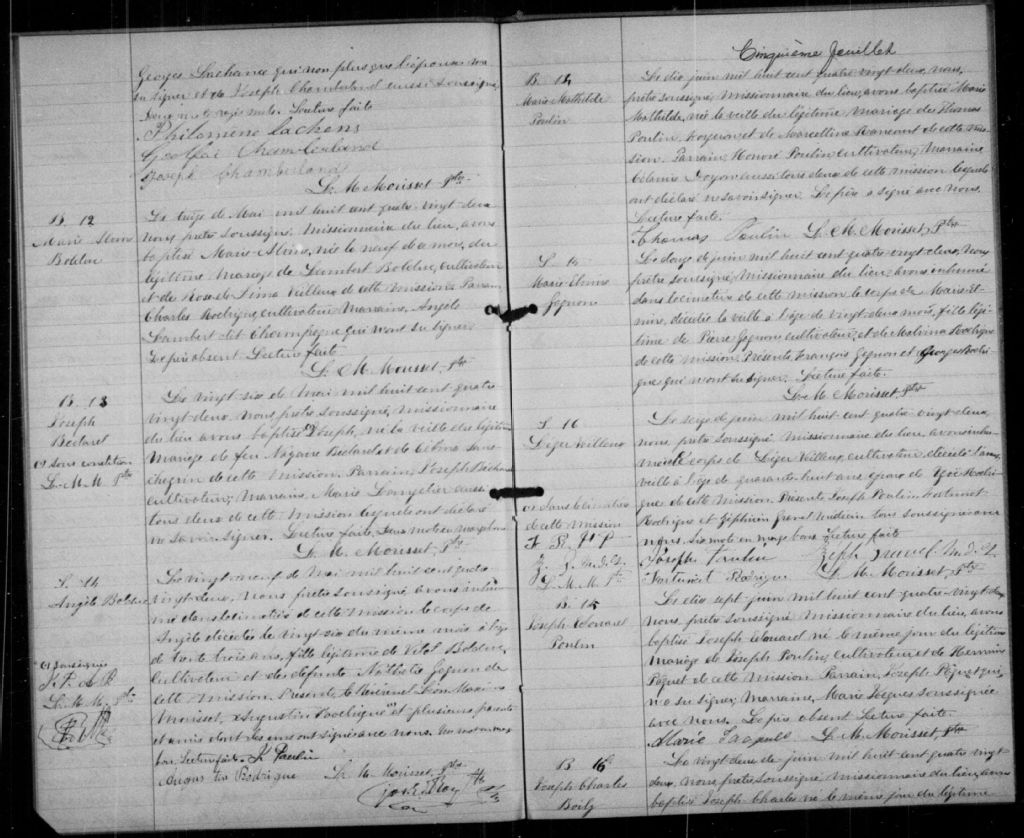 Georges Lachance qui non plus que l'épouse n'a
su signer et de Joseph Chamberland aussi soussigné,
Deux mots rayés nuls. Lecture faite
Philomène Lachens
Chamberland
Joseph Chamberland
L. M. Morisset, Ptre
B. 12
Marie Alvin
Bolduc
Le treize de Mai mil huit cent quatre vingt-deux
nous prêtre soussigné, missionnaire du lieu, avons
baptisé Marie-Alvin, née le neuf du mois, du
légitime mariage de Lambert Bolduc, cultivateur
et de Rose de Lima Veilleux de cette mission. Parrain,
Charles Rodrigue, cultivateur, Marraine, Angèle
Lambert dit Champagne qui n'ont su signer
Le père absent Lecture faite
L. M. Morisset, Ptre
B. 13
Joseph
Béclaret
(1) sous condition
L. M. M. Ptre
Le vingt-six de Mai mil huit cent quatre
vingt-deux, nous, prêtre soussigné, missionnaire
du lieu avons baptisé (1) Joseph, né la veille du légitime
Mariage de feu Nazaire et de
de cette mission. Parrain, Joseph
cultivateur, Marraine Marie aussi
tous deux de cette mission lesquels ont déclaré
ne savoir signer. Lecture faite. Deux mots en marge bons
L. M. Morisset, Ptre
S. 14
Angèle Bolduc
(1) soussignés
L. M. M. Ptre
Le vingt-neuf de Mai mil huit cent quatre
vingt-deux, nous prêtre soussigné avons inhu-
mé dans le cimetière de cette mission le corps de
Angèle décédée le vingt-six du même mois à l'âge
de trente trois ans, fille légitime de Vital Bolduc,
cultivateur et de défunte Nathalie Gagnon de
cette mission. Présents
Morisset, Augustin Rodrigue (1) et plusieurs parents
et amis dont les uns ont signé avec nous. Un mot en marge
bon. Lecture faite. J. Poulin
Rodrigue L. M. Morisset, Ptre
Cinquième feuillet
B. 14
Marie Mathilde
Poulin
Le dix juin mil huit cent quatre vingt-deux, nous,
prêtre soussigné, missionnaire du lieu, avons baptisé Marie
Mathilde, née la veille du légitime mariage de Thomas
Poulin, et de Marcelline Rancourt de cette mis-
sion. Parrain, Honoré Poulin, cultivateur, Marraine
aussi tous deux de cette mission lesquels
ont déclaré ne savoir signer. Le père a signé avec nous.
Lecture faite.
Thomas Poulin L. M. Morisset, Ptre
S. 15
Marie-Elmire
Gagnon
Le douze de juin mil huit cent quatre vingt deux, nous
prêtre soussigné, missionnaire du lieu avons inhumé
dans le cimetière de cette mission le corps de Marie-El-
mire, décédée la veille à l'âge de vingt-deux mois, fille légi-
time de Pierre Gagnon, cultivateur, et de Malvina Rodrigue
de cette mission. Présents, François Gagnon et Georges Rodri-
gue qui n'ont su signer. Lecture faite.
L. M. Morisset, Ptre
S. 16
Léger Veilleux
(1) dans le cimetière
de cette mission
L. M. M. Ptre
Le seize de juin, mil huit cent quatre vingt deux,
nous, prêtre soussigné missionnaire du lieu, avons inhu-
mé (1) le corps de Léger Veilleux, cultivateur, décédé l'avant
veille à l'âge de quarante-huit ans époux de Zoé Rodri-
gue de cette mission. Présents Joseph Poulin, Fortunat
Rodrigue et Zéphirin tous soussignés avec
nous. Six mots en marge bons. Lecture faite
Joseph Poulin
Fortunat Rodrigue
L. M. Morisset, Ptre
B. 15
Joseph Edouard
Poulin
Le dix sept juin mil huit cent quatre-vingt-deux
nous, prêtre soussigné missionnaire du lieu, avons
baptisé Joseph Edouard né le même jour du légitime
mariage de Joseph Poulin, cultivateur et de Hermine
Paquet de cette mission. Parrain, Joseph Paquet qui
n'a su signer, Marraine, Marie Jacques soussignée
avec nous. Le père absent Lecture faite.
Marie Jacques L. M. Morisset, Ptre
B. 16
Joseph Charles
Boily
Le vingt deux de juin mil huit cent quatre vingt
deux, nous prêtre soussigné missionnaire du lieu, avons
baptisé Joseph-Charles né le même jour du légitime